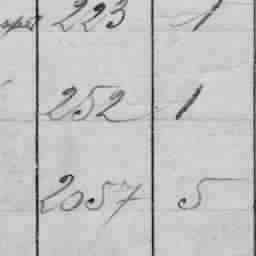 223 1
252 1
2057 5